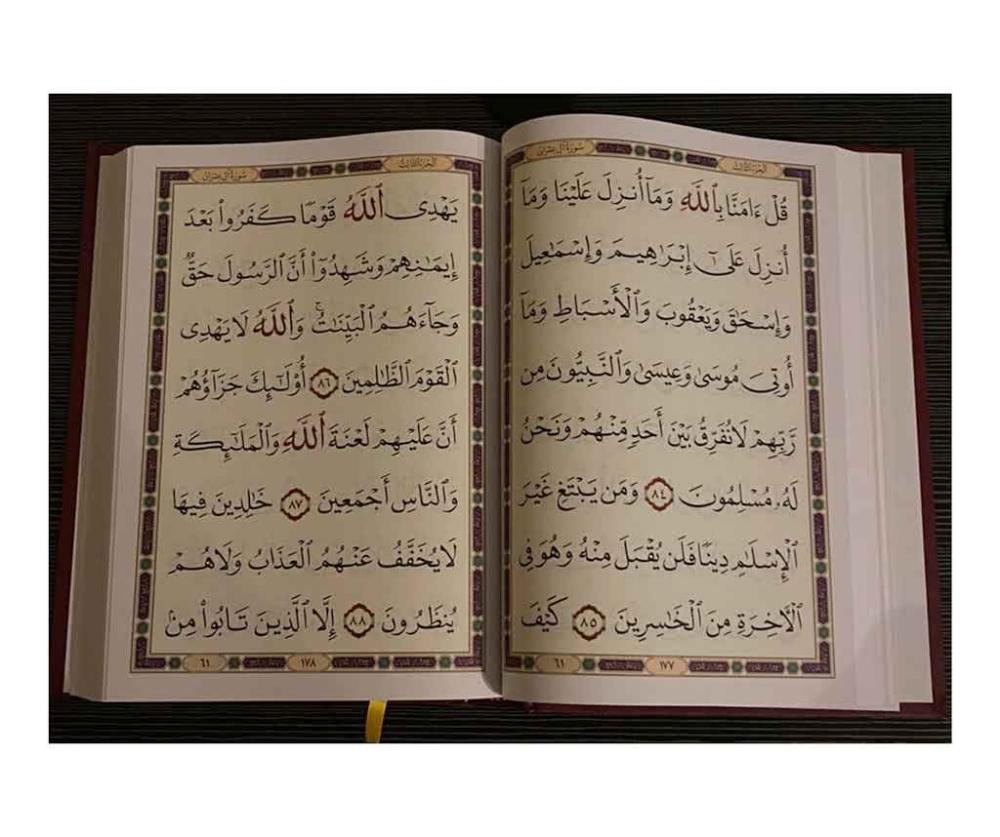 سُورَةُ آلِ عِمْرَانَ
الجُزْءُ الثَّالِثُ
قُلْ ءَامَنَّا بِٱللَّهِ وَمَآ أُنزِلَ عَلَيْنَا وَمَآ
أُنزِلَ عَلَىٰٓ إِبْرَٰهِيمَ وَإِسْمَٰعِيلَ
وَإِسْحَٰقَ وَيَعْقُوبَ وَٱلْأَسْبَاطِ وَمَآ
أُوتِىَ مُوسَىٰ وَعِيسَىٰ وَٱلنَّبِيُّونَ مِن
رَّبِّهِمْ لَا نُفَرِّقُ بَيْنَ أَحَدٍ مِّنْهُمْ وَنَحْنُ
لَهُۥ مُسْلِمُونَ ٨٤ وَمَن يَبْتَغِ غَيْرَ
ٱلْإِسْلَٰمِ دِينًا فَلَن يُقْبَلَ مِنْهُ وَهُوَ فِى
ٱلْءَاخِرَةِ مِنَ ٱلْخَٰسِرِينَ ٨٥ كَيْفَ
١٧٧
٦١
سُورَةُ آلِ عِمْرَانَ
الجُزْءُ الثَّالِثُ
يَهْدِى ٱللَّهُ قَوْمًا كَفَرُوا۟ بَعْدَ
إِيمَٰنِهِمْ وَشَهِدُوٓا۟ أَنَّ ٱلرَّسُولَ حَقٌّ
وَجَآءَهُمُ ٱلْبَيِّنَٰتُ ۚ وَٱللَّهُ لَا يَهْدِى
ٱلْقَوْمَ ٱلظَّٰلِمِينَ ٨٦ أُو۟لَٰٓئِكَ جَزَآؤُهُمْ
أَنَّ عَلَيْهِمْ لَعْنَةَ ٱللَّهِ وَٱلْمَلَٰٓئِكَةِ
وَٱلنَّاسِ أَجْمَعِينَ ٨٧ خَٰلِدِينَ فِيهَا
لَا يُخَفَّفُ عَنْهُمُ ٱلْعَذَابُ وَلَا هُمْ
يُنظَرُونَ ٨٨ إِلَّا ٱلَّذِينَ تَابُوا۟ مِنۢ
١٧٨
٦١